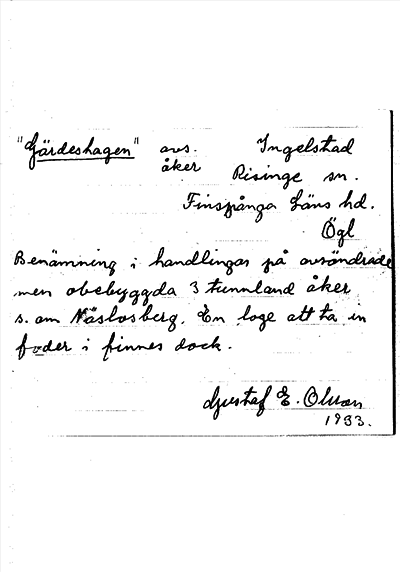 "Gärdeshagen" avs. Ingelstad
åker Risinge sn.
Finspånga Läns hd.
Ögl
Benämning i handlingar på avsöndrade
men obebyggda 3 tunnland åker
s. om Näslosberg. En loge att ta in
foder i finnes dock.
Gustaf E. Olson
1933.